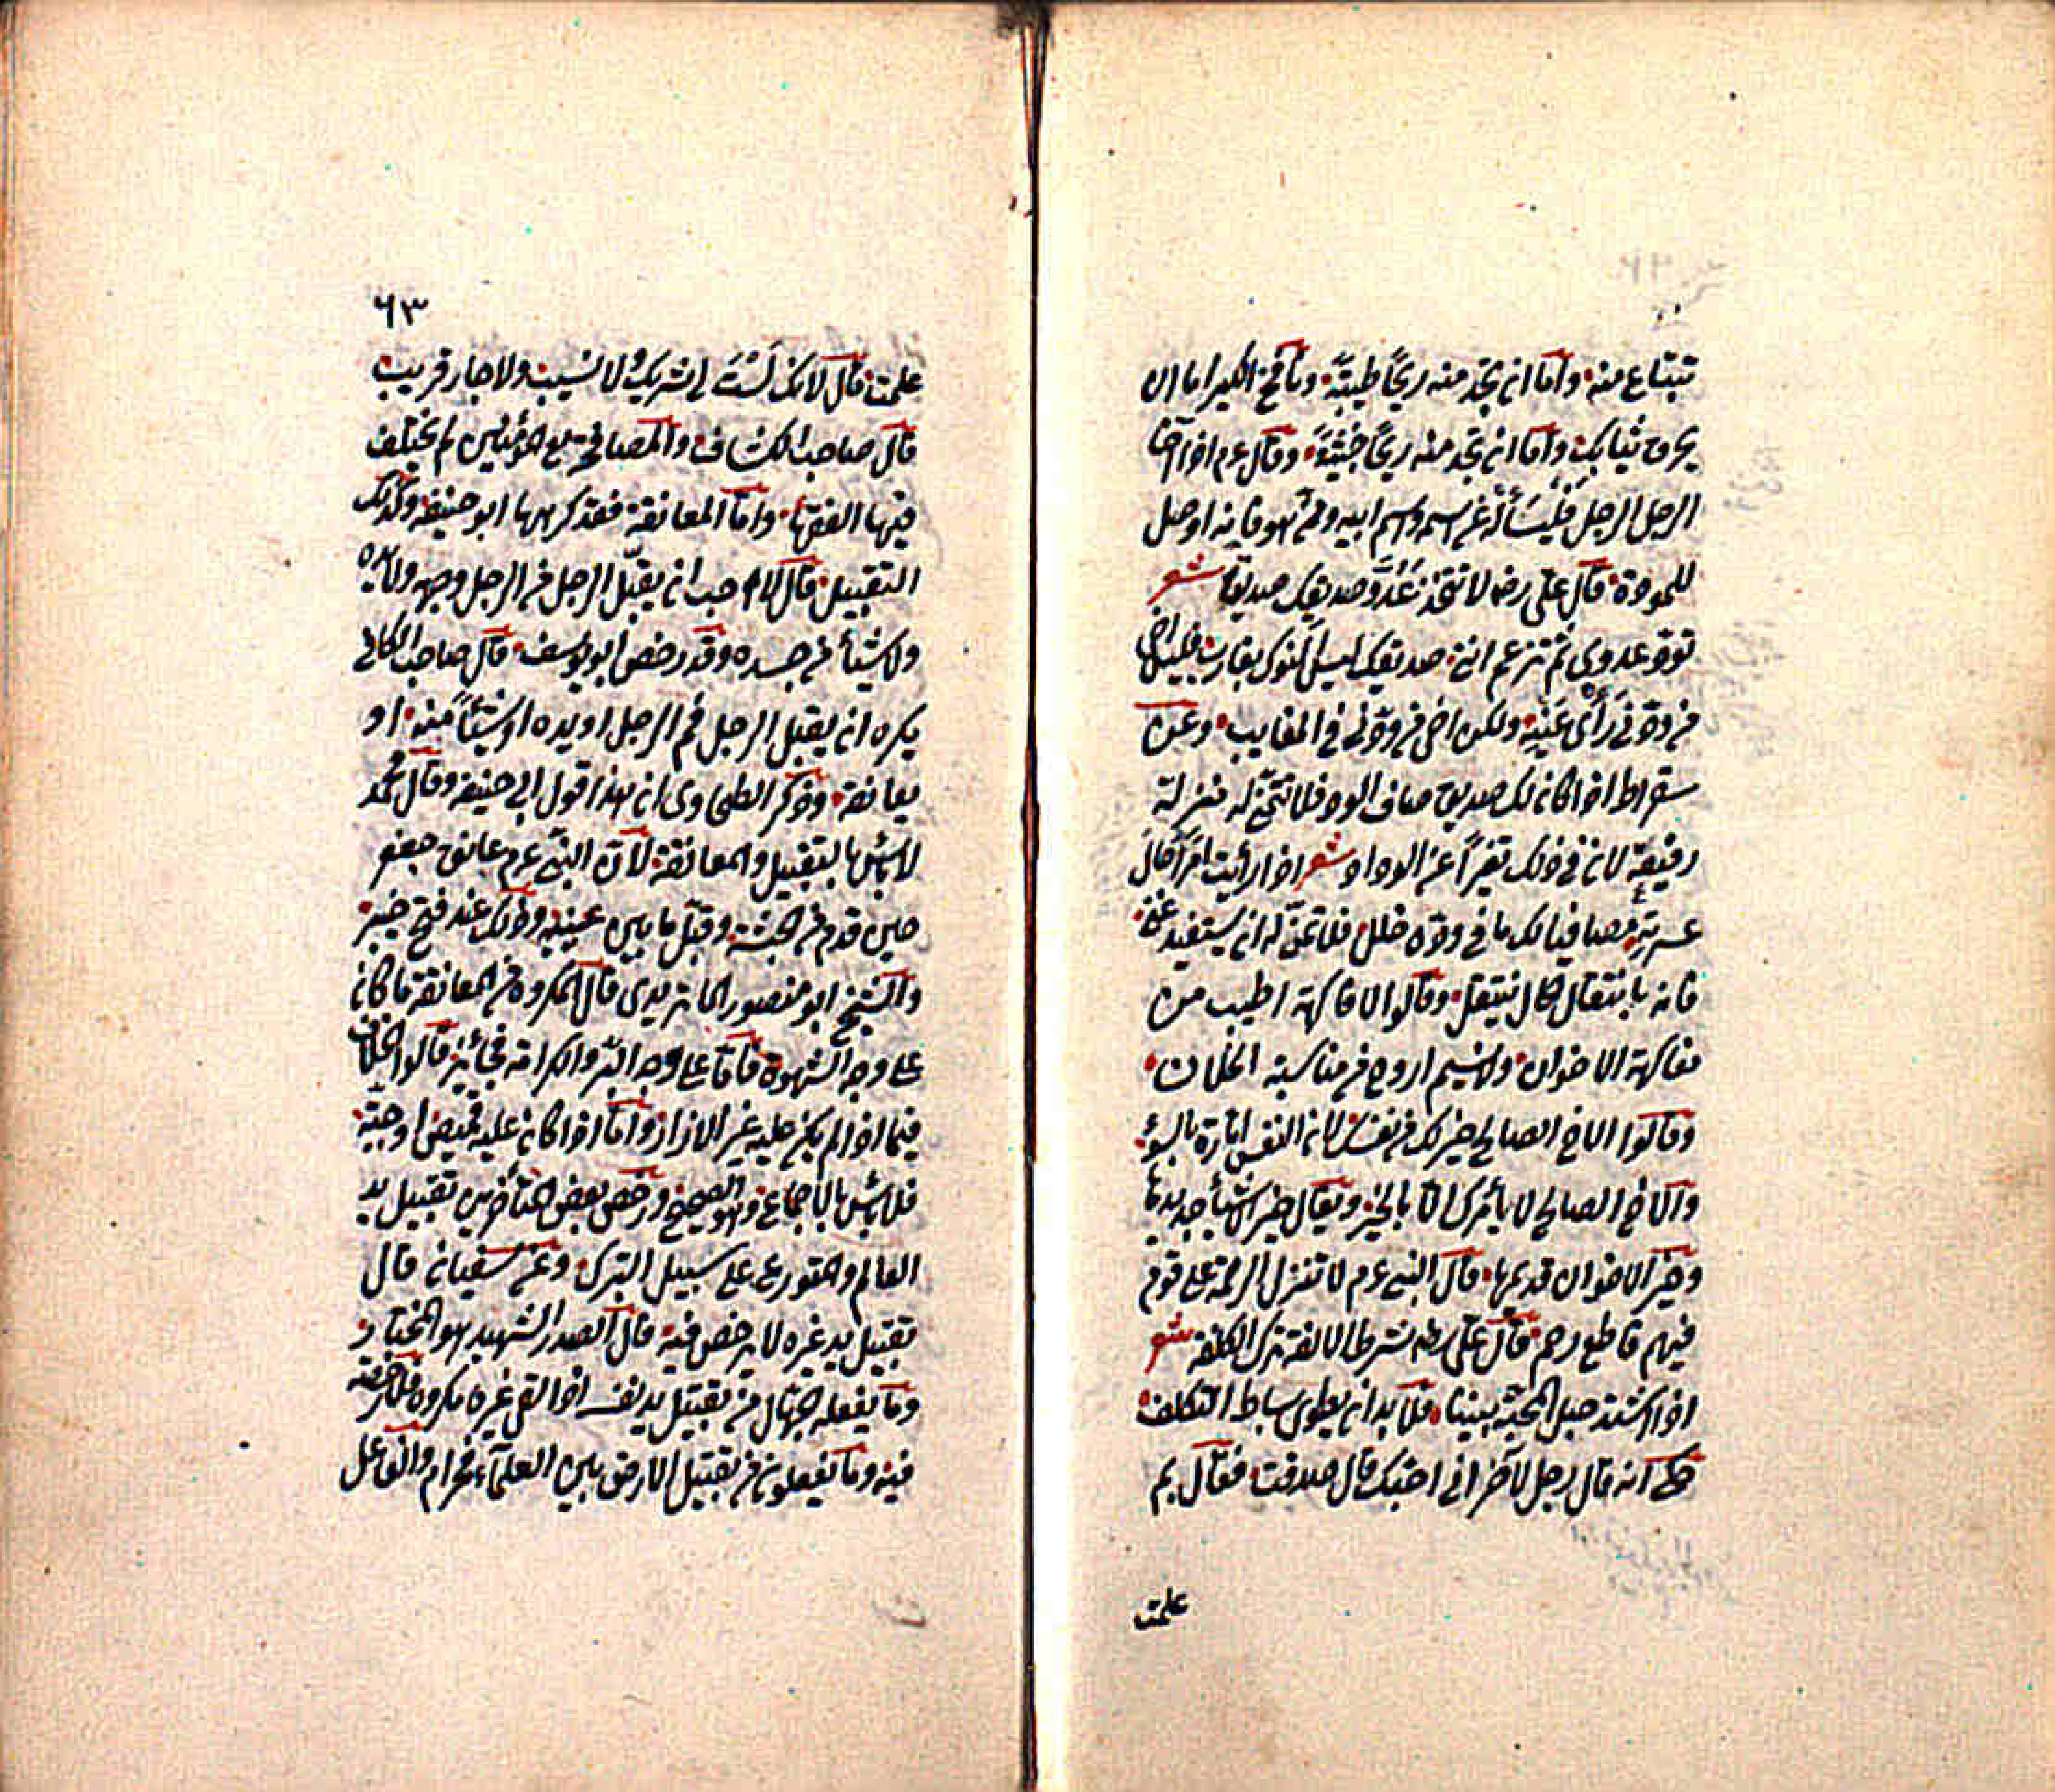 تبتاع منه واما ان تجد منه ريحا طيبة ونافخ الكير اما ان
يحرق ثيابك واما ان تجد منه ريحا خبيثة وقال عم اذا آخا
الرجل الرجل فليسأله عن اسمه واسم ابيه وممن هو فانه اوصل
للمودة قال علي رضه لا تتخذن عدو صديقك صديقا شعر
تود عدوي ثم تزعم انني صديقك ليس النوك بعازب فليس اخي
من ودني رأي عينه ولكن اخي من ودني في المغايب وعن
سقراط اذا كان لك صديق صافي الود فلا تتمن له منزلة
رفيعة لان في ذلك تغيرا عن الوداد شعر اذا رأيت امرأ حال
عسرته مصافيا لك ما في وده خلل فلا تمن له ان يستفيد غنى
فانه بانتقال الحال ينتقل وقالوا لا فاكهة اطيب من
مفاكهة الاخوان ولا نسيم اروح من مناسبة الخلان
وقالوا الاخ الصالح خير لك من نفسك لان النفس امارة بالسوء
والاخ الصالح لا يأمرك الا بالخير ويقال خير الاشياء جديدها
وخير الاخوان قديمها قال النبي عم لا تنزل الرحمة على قوم
فيهم قاطع رحم قال علي رضه شرط الالفة ترك الكلفة شعر
اذا اشتد حبل المحبة بيننا فلا بد ان يطوى بساط التكلف
حكي انه قال رجل لآخر اني احبك قال صدقت فقال بم
علمت
٦٣
علمت قال لانك لست لي شريك ولا نسيب ولا جار قريب
قال صاحب الكشاف والمصافحة مع المؤمنين لم يختلف
فيها الفقها واما المعانقة فقد كرهها ابو حنيفة وكذلك
التقبيل قال لا احب ان يقبل الرجل من الرجل وجهه ولا يده
ولا شيئا من جسده وقد رخص ابو يوسف قال صاحب الكافي
يكره ان يقبل الرجل فم الرجل او يده او شيئا منه او
يعانقه وذكر الطحاوي ان هذا قول ابي حنيفة وقال محمد
لا بأس بالتقبيل والمعانقة لان النبي عم عانق جعفر
حين قدم من الحبشة وقبل ما بين عينيه وذلك عند فتح خيبر
والشيخ ابو منصور الماتريدي قال المكروه من المعانقة ما كان
على وجه الشهوة فاما على وجه البر والكرامة فجائز قالوا الخلاف
فيما اذا لم يكن عليه غير الازار واما اذا كان عليه قميص او جبة
فلا بأس بالاجماع وهو الصحيح ورخص بعض المتأخرين تقبيل يد
العالم والمتورع على سبيل التبرك وعن سفيان قال
تقبيل يد غيره لا يرخص فيه قال الصدر الشهيد هو المختار
وما يفعله الجهال من تقبيل يد نفسه اذا لقي غيره مكروه فلا رخصة
فيه وما يفعلون من تقبيل الارض بين العلماء فحرام والفاعل